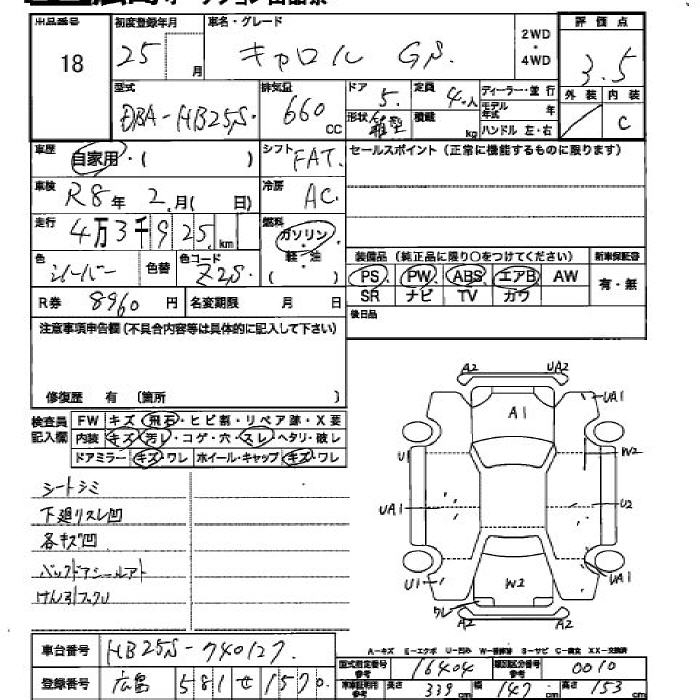 出品番号 初度登録年月 車名・グレード 2WD・4WD 評価点
18 25 月 キャロル GS. 3.5
外装 内装
C
型式 排気量 ドア 定員 ディーラー・並行
DBA-HB25S. 660CC 5. 4.人 モデル年式 年
形状 箱型 積載 kg ハンドル 左・右
車歴 自家用・( ) シフト FAT. セールスポイント(正常に機能するものに限ります)
車検 R8年 2.月( 日) 冷房 AC.
走行 4万3千925.km 燃料 ガソリン・軽・油 ( )
色 シルバー 色替 色コード Z2S.
装備品(純正品に限り○をつけてください) 新車保証書
PS PW ABS エアB AW 有・無
SR ナビ TV カワ
R券 8960 円 名変期限 月 日
後日品
注意事項申告欄(不具合内容等は具体的に記入して下さい)
修復歴 有 〔箇所 〕
検査員記入欄
FW キズ・飛石・ヒビ割・リペア跡・X要
内装 キズ・汚レ・コゲ・穴・スレ・ヘタリ・破レ
ドアミラー キズ・ワレ ホイール・キャップ キズ・ワレ
シートシミ
下廻リスレ凹
各キズ凹
バックドアシールアト
けん引フックU
A2 UA2
A1 UA1
U1 W2
UA1 U2
U1 W2 UA1
ワレ A2 A2
A-キズ E-エクボ U-凹み W-補修跡 S-サビ C-腐食 XX-交換済
車台番号 HB25S-740127.
型式指定番号 参考 16404 類別区分番号 参考 0010
登録番号 広島 581 せ 1570
車庫証明用 参考 長さ 339cm 幅 147cm 高さ 153cm